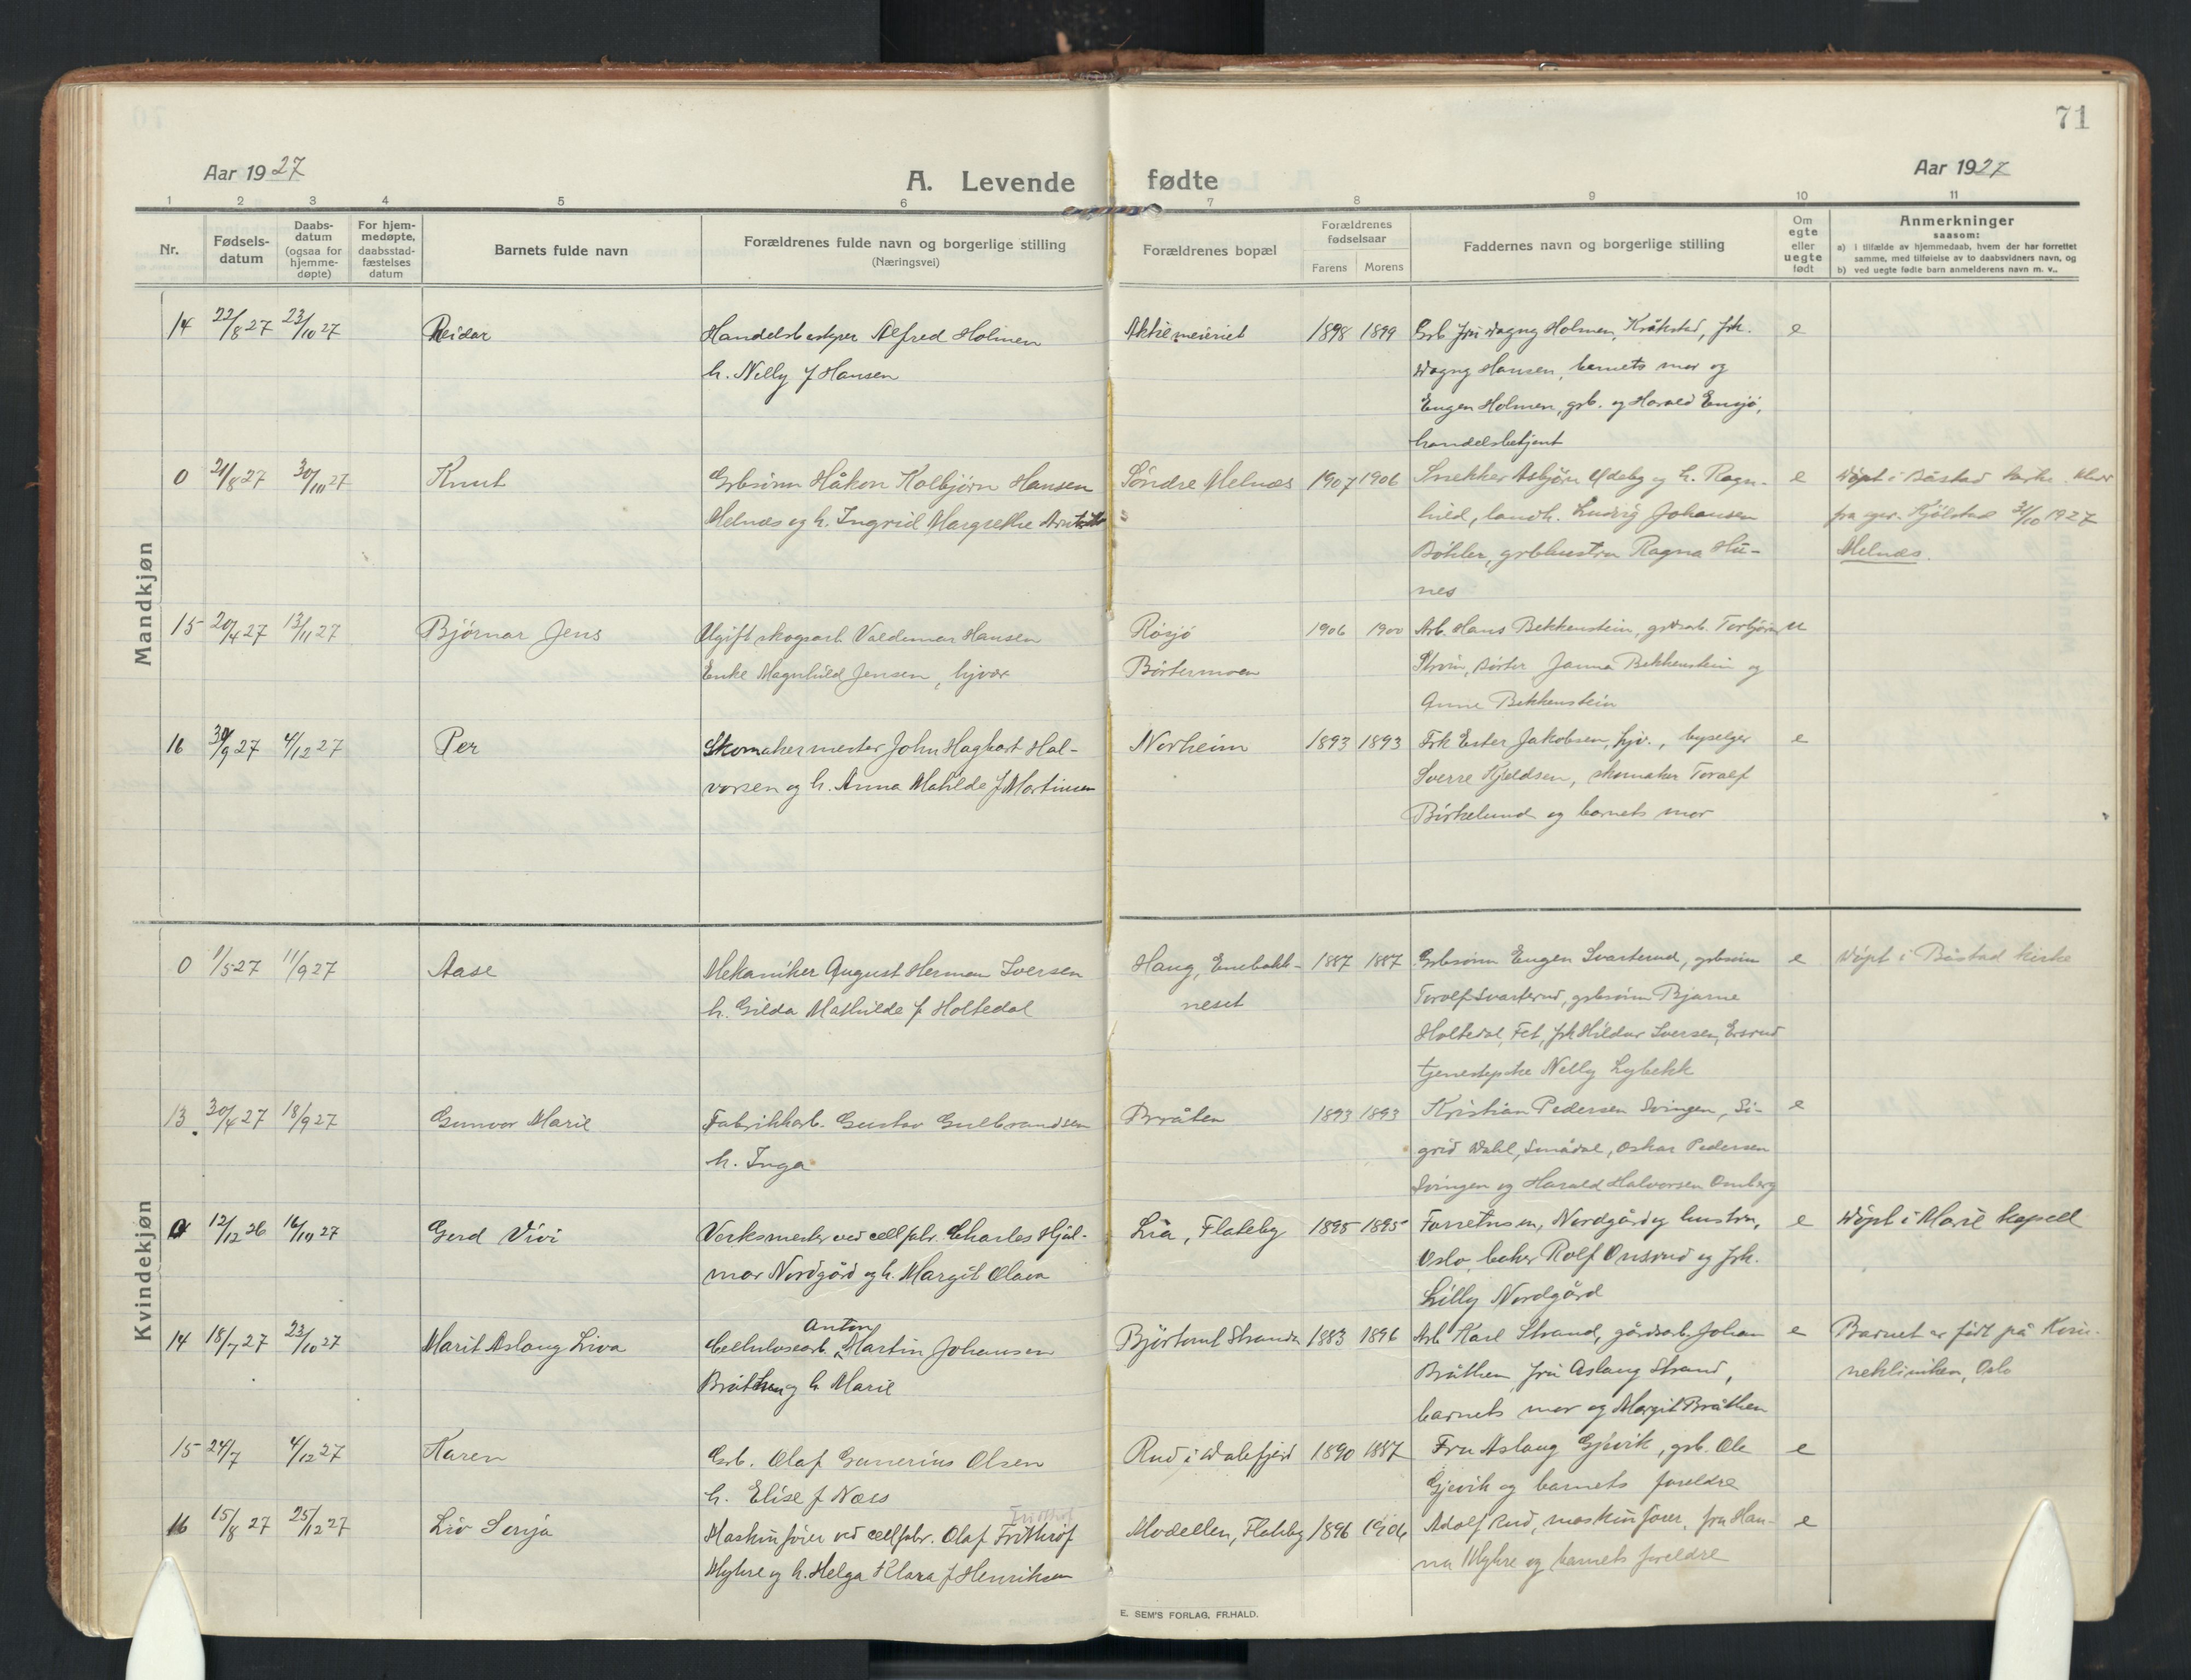 71
Aar 1927
Aar 1927
A. Levende fødte
1 2 3 4 5 6 7 8 9 10 11
Nr.
Fødsels-
datum
Daabs-
datum
(ogsaa for
hjemme-
døpte)
For hjem-
medøpte,
daabsstad-
fæstelses
datum
Barnets fulde navn
Forældrenes fulde navn og borgerlige stilling
(Næringsvei)
Forældrenes bopæl
Forældrenes
fødselsaar
Farens Morens
Faddernes navn og borgerlige stilling
Om
egte
eller
uegte
født
Anmerkninger
saasom:
a) i tilfælde av hjemmedaab, hvem der har forrettet
samme, med tilføielse av to daabsvidners navn, og
b) ved uegte fødte barn anmelderens navn m. v..
Mandkjøn
14 22/8 27 23/10 27 Reidar Handelsbestyrer Alfred Holmen Aktiemeieriet 1898 1899 Grb. fru Dagny Holmen, Kråkstad, frk. e
h. Nelly f Hansen Dagny Hansen, barnets mor og
Eugen Holmen, grb. og Harald Ensjø,
handelsbetjent
0 21/8 27 30/10 27 Knut Grbsønn Håkon Kolbjørn Hansen Søndre Melnæs 1907 1906 Snekker Asbjørn Ydeby og h. Ragn- e Døpt i Båstad kirke
Melnæs og h. Ingrid Margrethe hild, landh. Ludvig Johansen fra Kjølstad 31/10 1927
Bøhler, grbhustru Ragna Hu- Melnæs.
nes
15 20/4 27 13/11 27 Bjørnar Jens Ugift skogsarb. Valdemar Hansen Røsjø 1906 1900 Arb. Hans Bekkenstein, grdsarb. Torbjørn u
Enke Magnhild Jensen, hjvær. Børtermoen Børter Janna Bekkenstein og
Anne Bekkenstein
16 30/9 27 4/12 27 Per Skomakermester John Hagbart Hal- Norheim 1893 1893 Frk Ester Jakobsen, hjv., byselger e
vorsen og h. Anna Mathilde f Martinsen Sverre Kjeldsen, skomaker Toralf
Birkelund og barnets mor
Kvindekjøn
0 1/5 27 11/9 27 Aase Mekaniker August Herman Iversen Haug, Enebakk- 1887 1887 Grbsønn Eugen Svarterud, grbsønn e Døpt i Båstad kirke
h. Gilda Mathilde f Holtedal neset Torolf Svarterud, grbsønn Bjarne
Holtedal, Fet, frk Hildur Iversen,
tjenestepike Nelly Lybekk
13 30/4 27 18/9 27 Gunvor Marie Fabrikkarb. Gustav Gulbrandsen Bråten 1893 1893 Kristian Pedersen Svingen, Si- e
h. Inga grid Dahl, Smådal, Oskar Pedersen
Svingen og Harald Halvorsen Omberg
0 12/12 26 16/10 27 Gerd Vivi Verksmester ved cellfabr. Charles Hjal- Lia, Flateby 1895 1895 Forretnsm, Nordgård og hustru, e Døpt i Mari kapell
mar Nordgård og h. Margit Olava Oslo, baker Rolf Onsrud og frk.
Lilly Nordgård
14 18/7 27 23/10 27 Marit Aslaug Liva Cellulosearb. Anton Martin Johansen Bjørtomt Stranda 1883 1896 Arb Karl Strand, gårdsarb. Johan e Barnet er født på Kvin-
Bråthen og h. Marie Bråthen, fru Aslaug Strand, neklinikken, Oslo
barnets mor og Margit Bråthen
15 24/7 4/12 27 Karen Grb. Olaf Gunerius Olsen Rud i Dalefjerd 1890 1887 Fru Aslaug Gjevik, grb. Ole e
h. Elise f Næss Gjevik og barnets foreldre
16 15/8 27 25/12 27 Liv Senja Maskinfører ved cellfabr. Olaf Frithiof Modellen, Flateby 1896 1906 Adolf Rud, maskinfører, fru Han- e
Myhre og h. Helga Klara f Henriksen na Myhre og barnets foreldre
E. SEM'S FORLAG, FR.HALD.